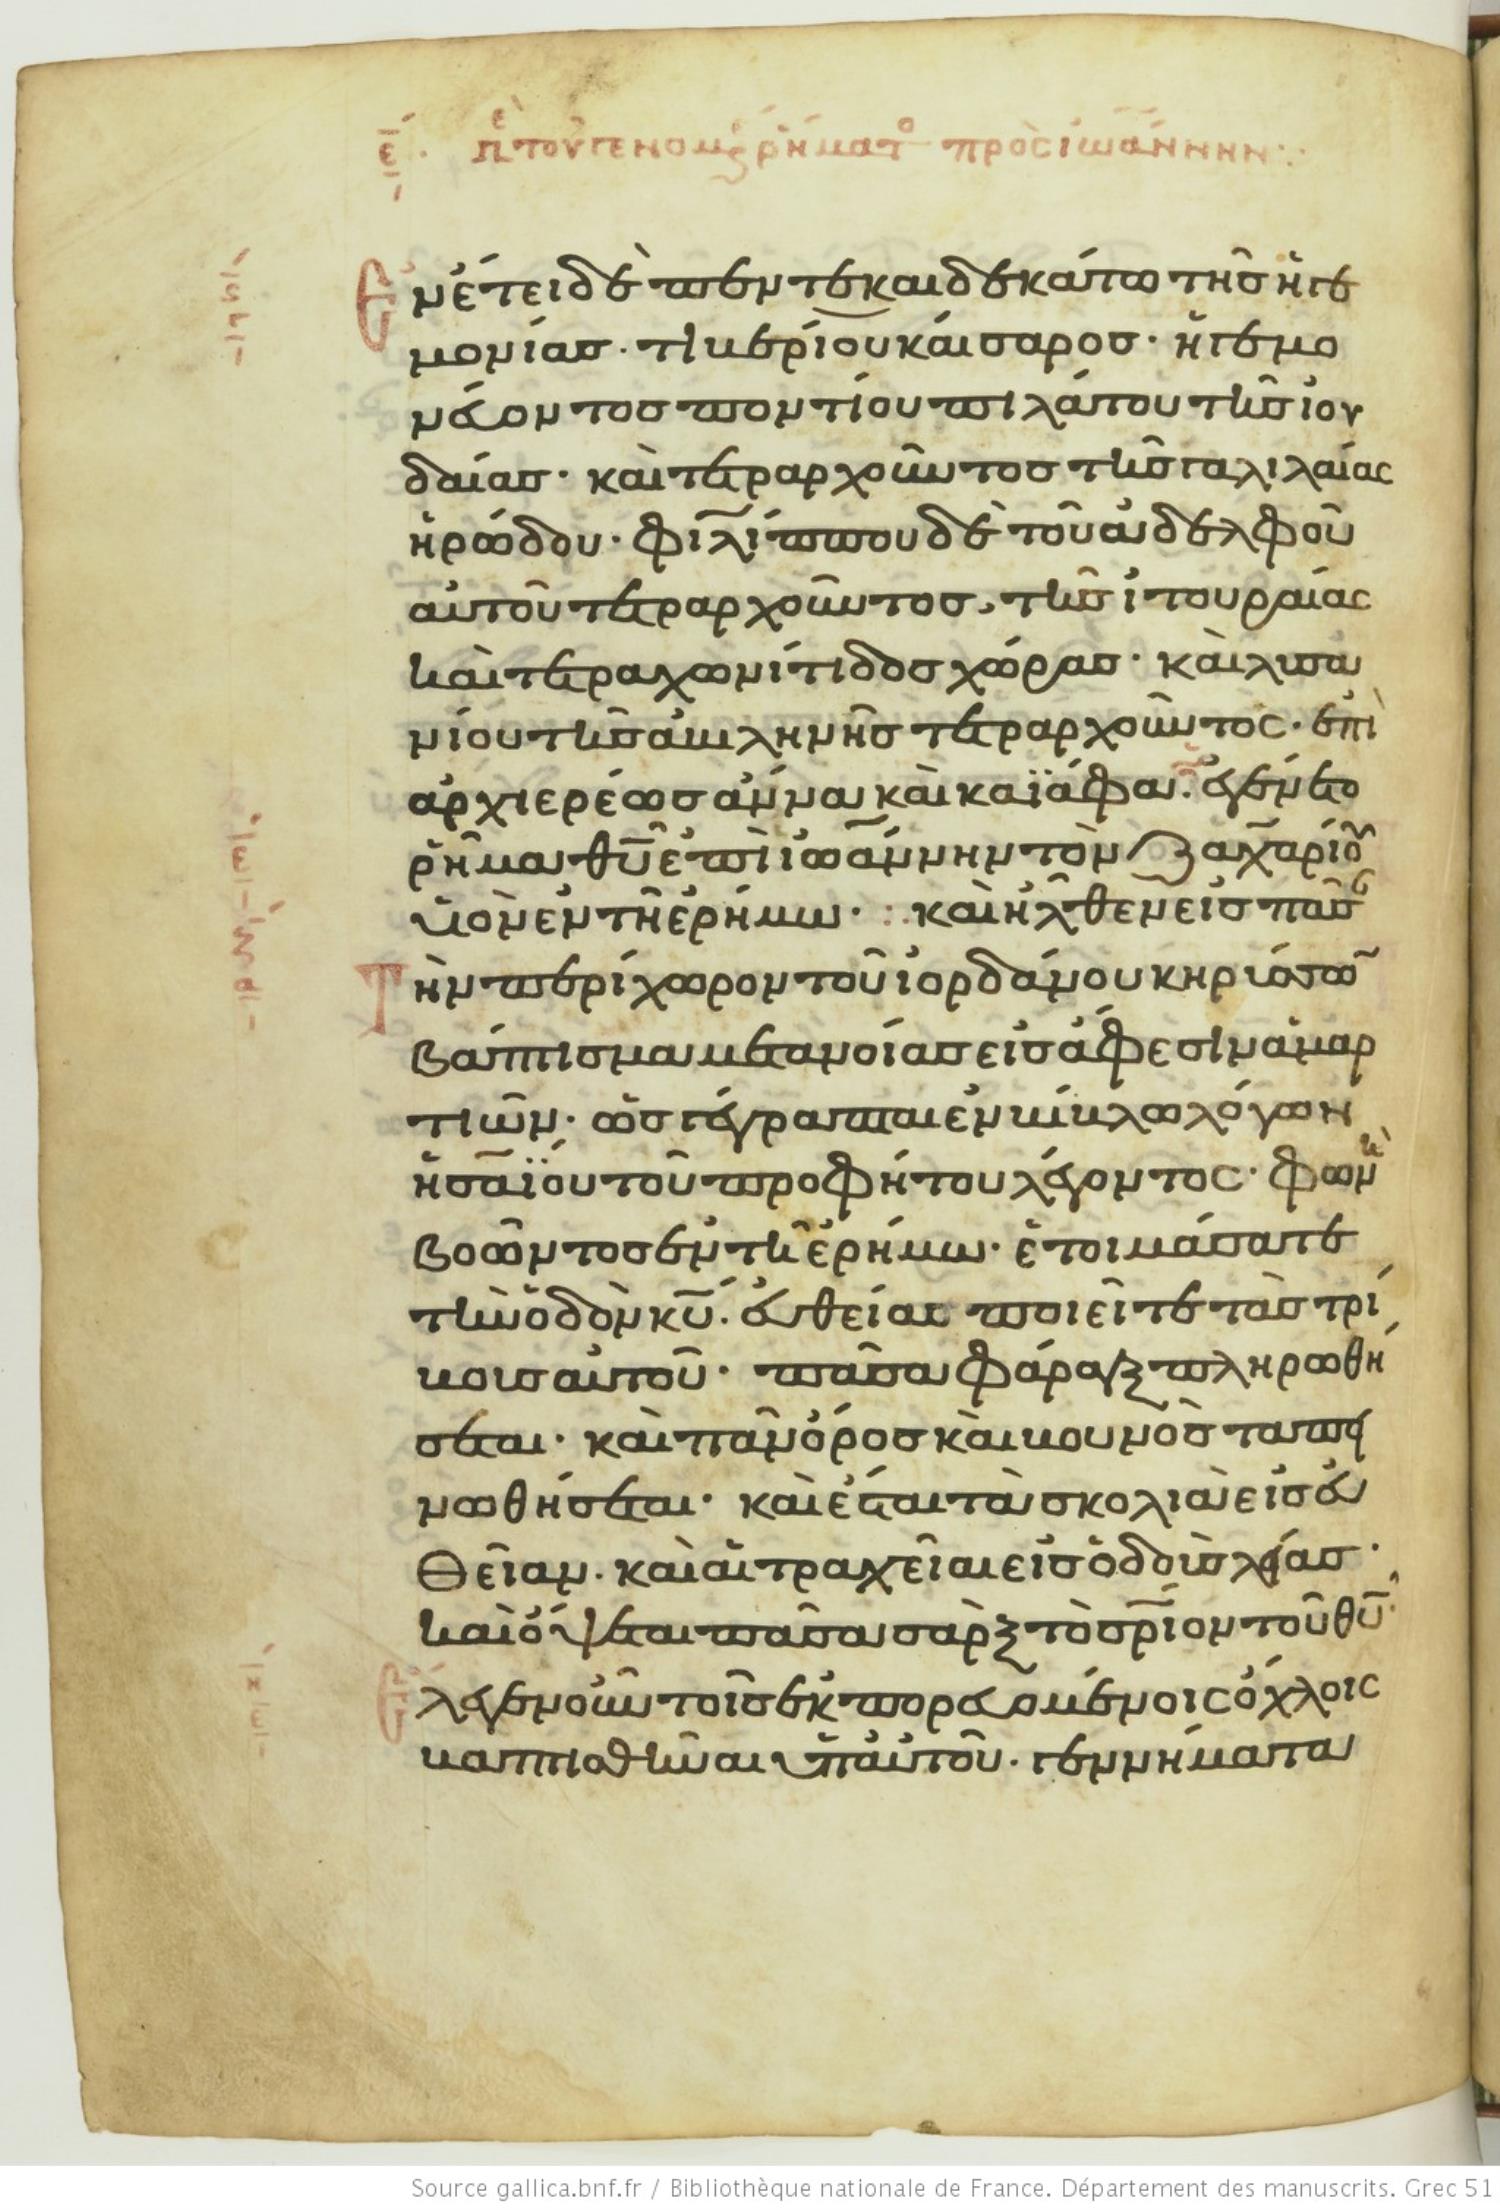 ε̄. πε τοῦ γενομ ῥήματο πρὸς ἰωάννην:
Ἐν ἔτει δὲ πεντεκαιδεκάτω τῆς ἡγε
μονίας· τιβερίου καίσαρος· ἡγεμο
νεύοντος ποντίου πιλάτου τῆς ἰου
δαίας· καὶ τετραρχοῦντος τῆς γαλιλαίας
ἡρώδου· φιλίππου δὲ τοῦ ἀδελφοῦ
αὐτοῦ τετραρχοῦντος, τῆς ἰτουραίας
καὶ τετραχωνίτιδος χώρας· καὶ λυσα
νίου τῆς ἀβιληνῆς τετραρχοῦντος· ἐπὶ
ἀρχιερέως ἄννα καὶ καϊάφα· ἐγένετο
ῥῆμα θῡ ἐπὶ ἰωάννην τὸν ζαχαρίου
υἱὸν ἐν τῆ ἐρήμω· καὶ ἦλθεν εἰς πᾶσ
Τὴν περίχωρον τοῦ ἰορδάνου κηρύσσω
βάπτισμα μετανοίας εἰς ἄφεσιν ἁμαρ
τιῶν· ὡς γέγραπται ἐν βίβλω λόγων
ἡσαΐου τοῦ προφήτου λέγοντος· φωνὴ
βοῶντος ἐν τῆ ἐρήμω· ἑτοιμάσατε
τὴν ὁδὸν κῡ· εὐθείας ποιεῖτε τὰς τρί
βους αὐτοῦ· πᾶσα φάραγξ πληρωθή
σεται· καὶ πᾶν ὄρος καὶ βουνὸς ταπει
νωθήσεται· καὶ ἔσται τὰ σκολιὰ εἰς εὐ
θεῖαν· καὶ αἱ τραχεῖαι εἰς ὁδοὺς λείας·
καὶ ὄψεται πᾶσα σὰρξ τὸ σρ̄ιον τοῦ θῡ·
Ἔλεγεν οὖν τοῖς ἐκπορευομένοις ὄχλοις
βαπτισθῆναι ὑπ' αὐτοῦ· γεννήματα
Source gallica.bnf.fr / Bibliothèque nationale de France. Département des manuscrits. Grec 51